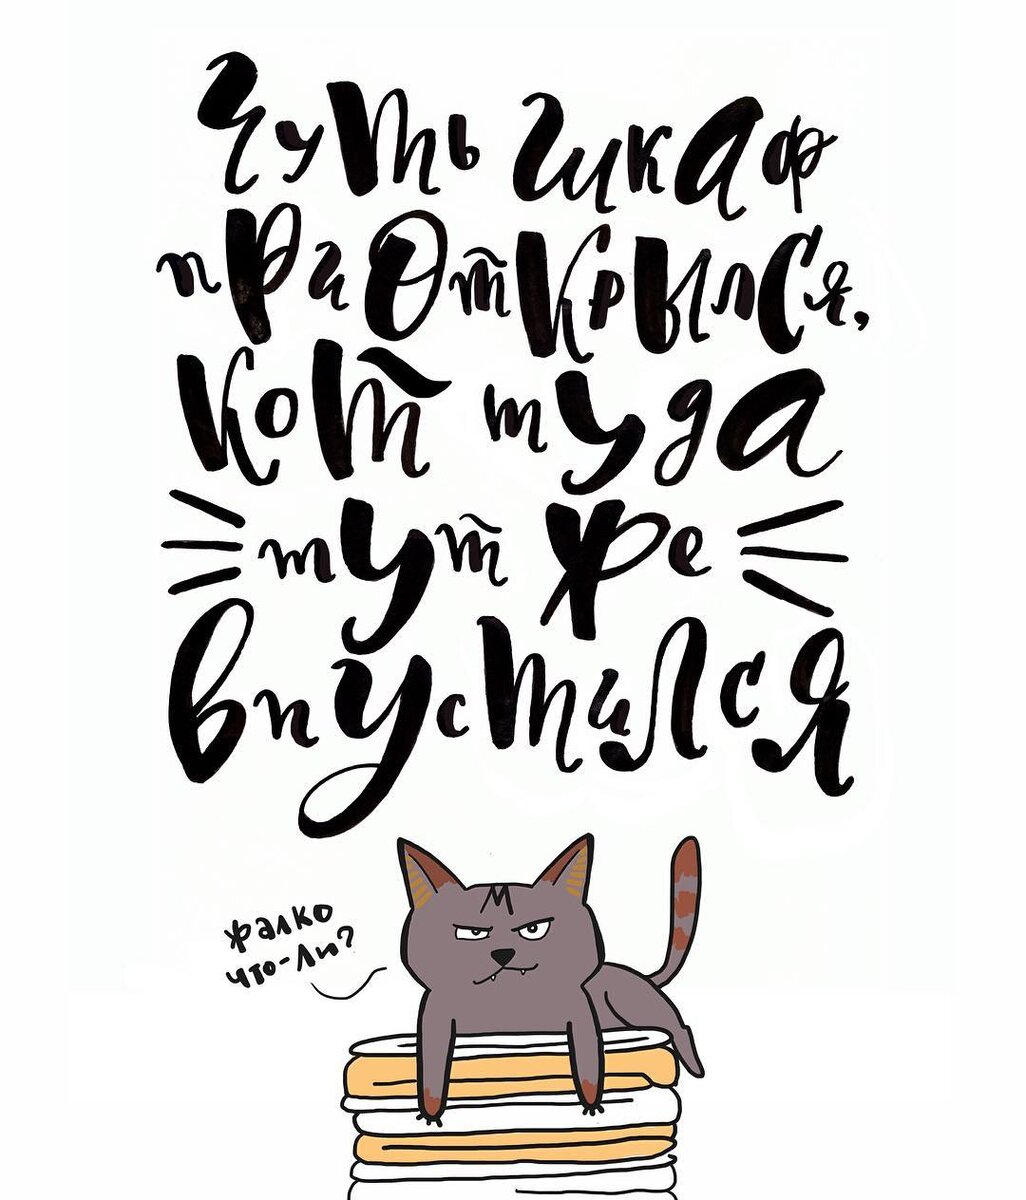 Чуть шкаф
приоткрылся,
кот туда
тут же
впустился
жалко
что-ли?